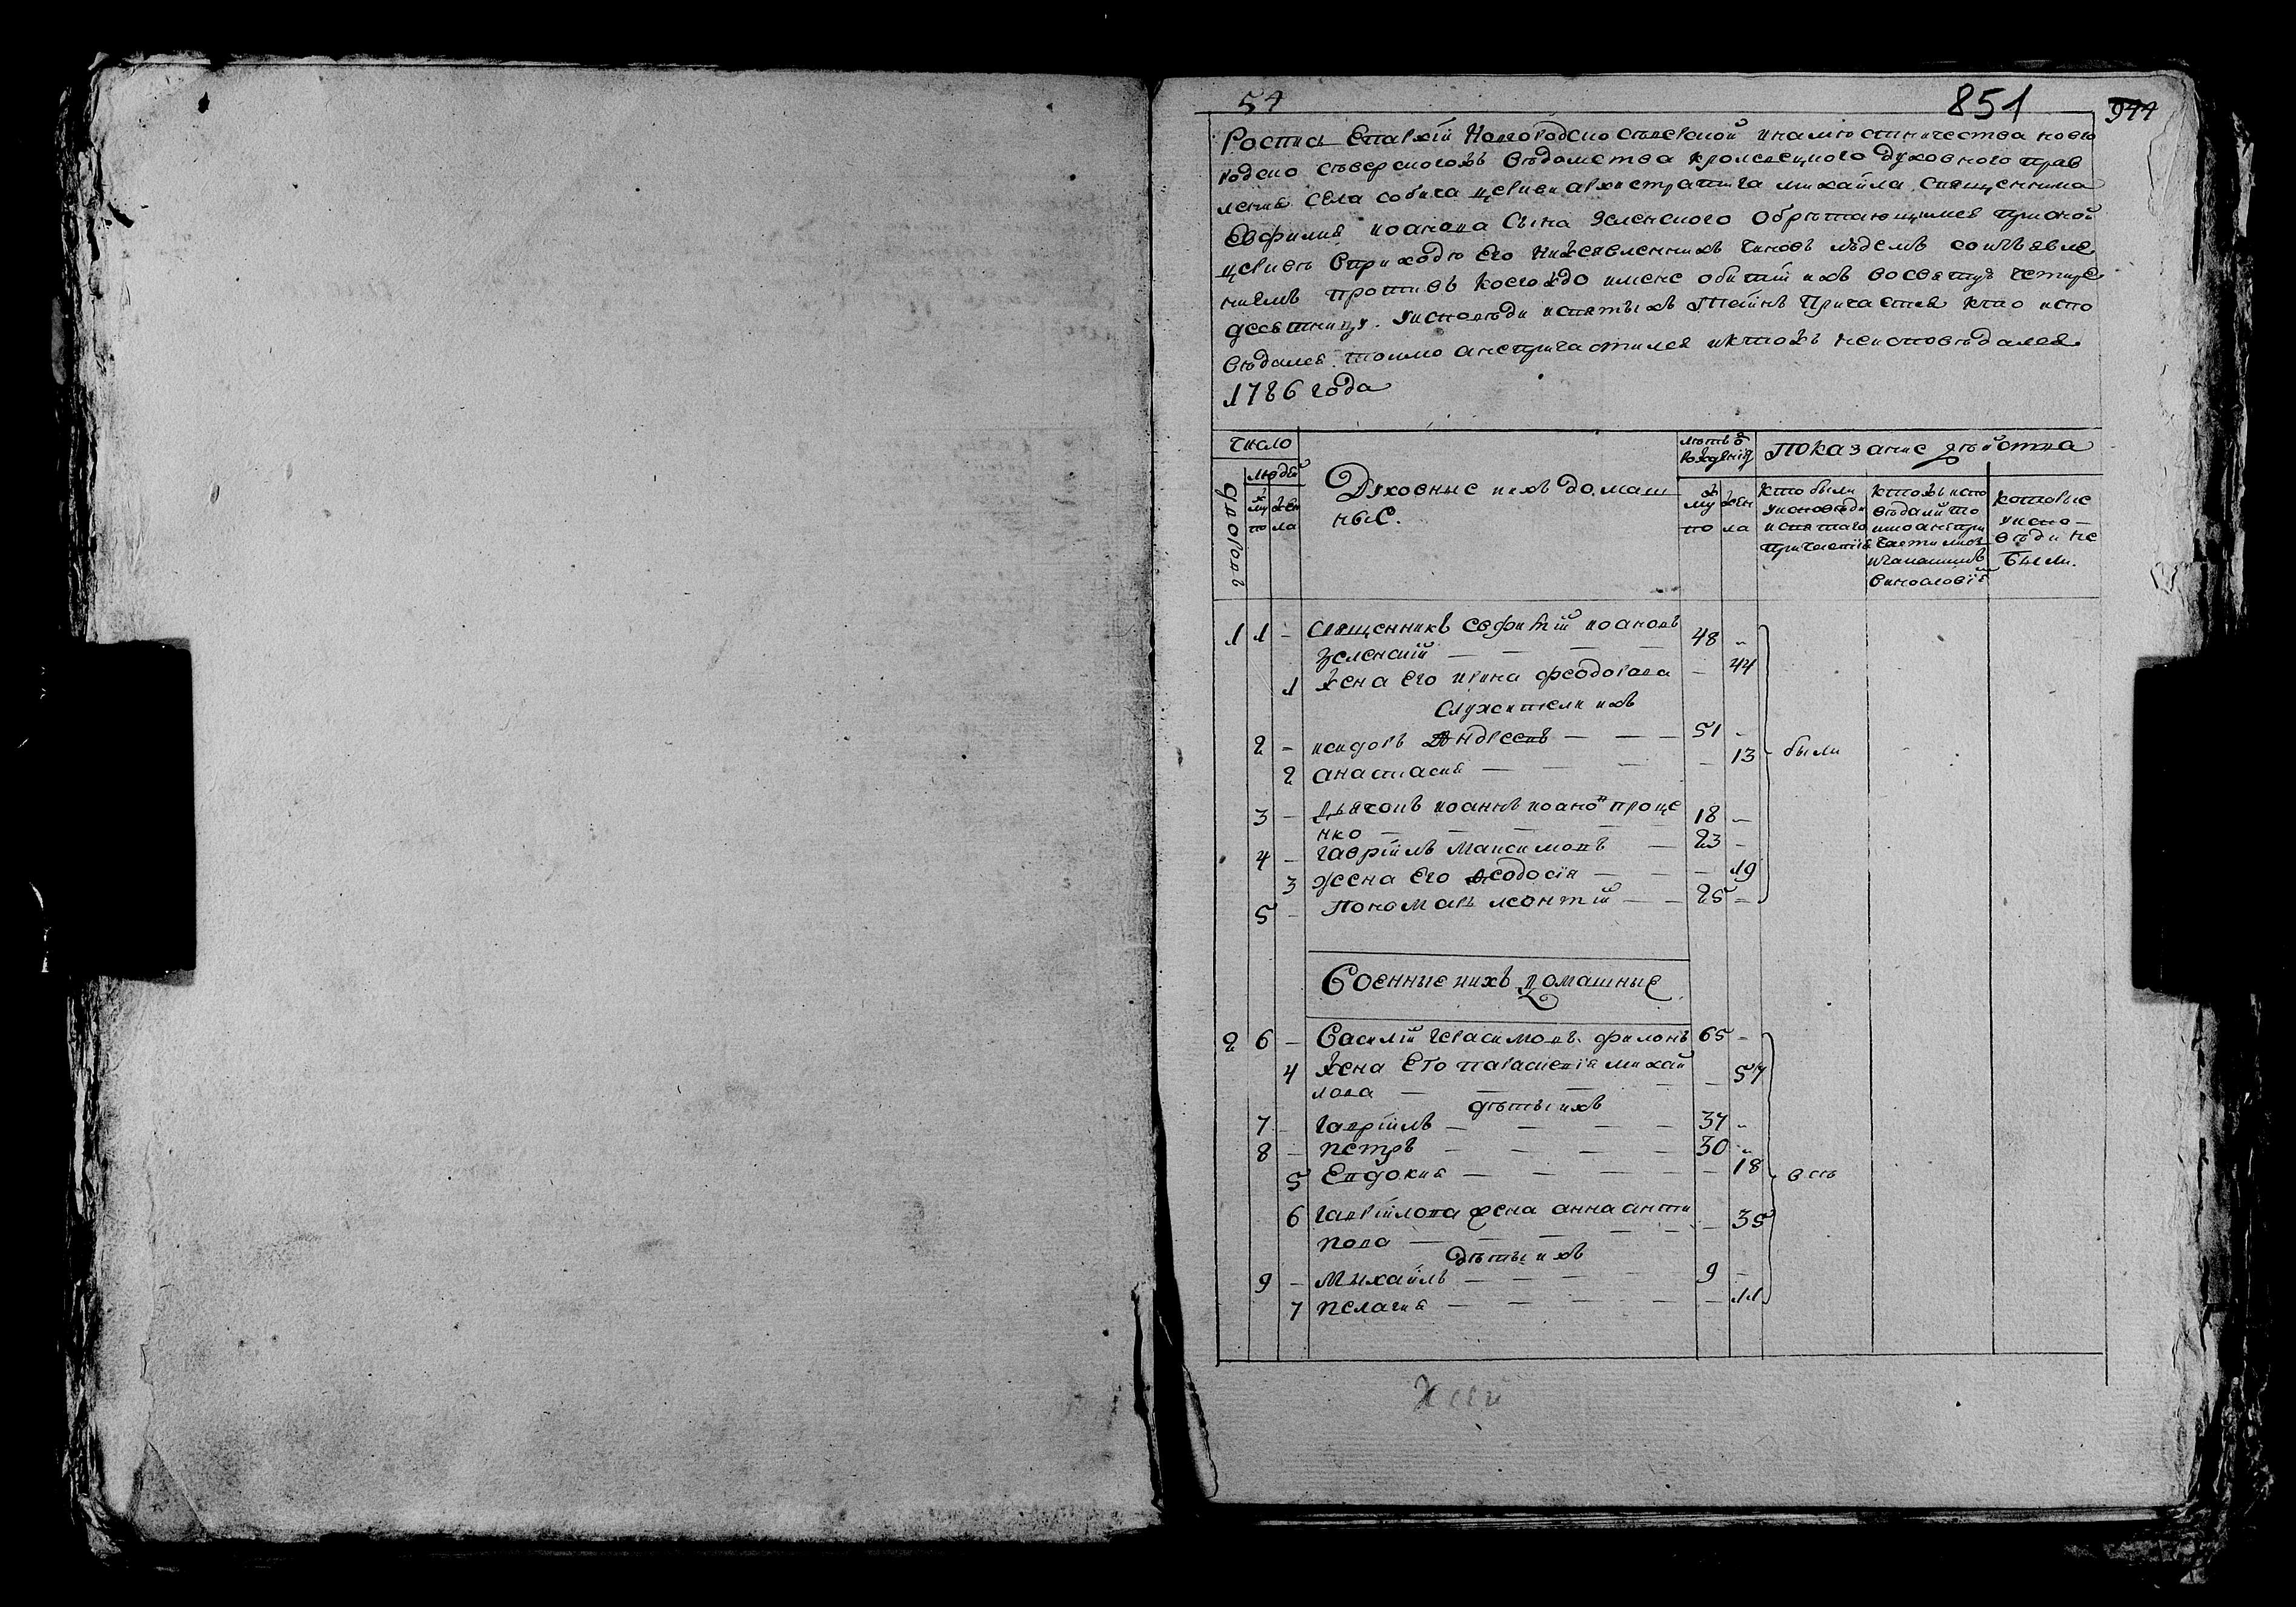 54
851
944
Роспись Епархіи Новгородско северской инаместничества новго
родско северскогожъ ведомства кролевецкого Духовного прав
ления Села собича церкви архистратига михаила священника
Евфимия иоанова Сына Зеленского Обретающимся прионой
церкве вприходе Его нижеявленнихъ чиновъ людемъ соизъявле
ниемъ противъ коегождо имене обитии ихъ восвятую четире
десятницу уисповеди исвятыхъ Тайнъ Причастия кто испо
ведался токмо анепричастился иктожъ неисповедался
1786 года
Число
летъ от
рождения
показание действа
людей
Дворовъ
муж
по
жен
ла
Духовные иихъ домаш
ные.
муж
по
жен
ла
кто были
уисповеди
исвятаго
причастия
ктожъ испо
ведали то
кмо анепри
частились
изакакимъ
винословіем
которые
уиспо
веди не
были.
1 1 – Священникъ евфимій иоановъ
Зеленский — — — 48 –
1 Жена Его ирина феодорова – 44
Служители ихъ
2 – исидоръ Андреевъ — — — 51 –
2 анастасия — — — – 13
были
3 – Дьячокъ иоаннъ иоановъ проце
нко — — — 18 –
4 – гавріилъ Максимовъ — 23 –
3 жена Его феодосія — — – 19
5 – Пономарь леонтій — — 25 –
Военные иихъ домашные
2 6 – Василій герасимовъ филонъ 65 –
4 Жена Его параскевія михай
лова — — — – 57
деты ихъ
7 – гавріилъ — — — — 37 –
8 – петръ — — — — 30 –
5 Евдокия — — — — – 18
все
6 гавріилова жена анна анти
пова — — — — – 35
деты ихъ
9 – Михаилъ — — — — 9 –
7 пелагия — — — — – 11